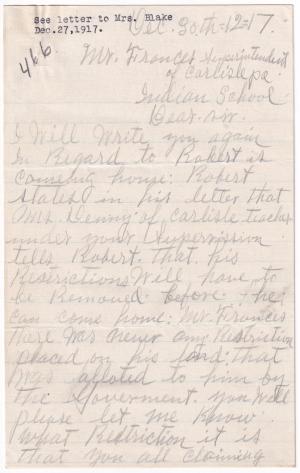 See letter to Mrs. Blake
Dec.27,1917.
Dec. 30th=12=17.
466
Mr. Frances Superintendent
of Carlisle Pa
Indian School
Dear Sir.
I Will Write you again
In Regard to Robert is
comeing house: Robert
States in his letter that
Mrs. Denny of Carlisle teacher
under your Supermission
tells Robert. that. his
Restrictions Will have to
be Removed before he
can come home: Mr. Frances
there was never any Restriction
placed on his land that
was alloted to him by
the Goverment. you Will
please let me know
What Restriction it is
that you all claiming